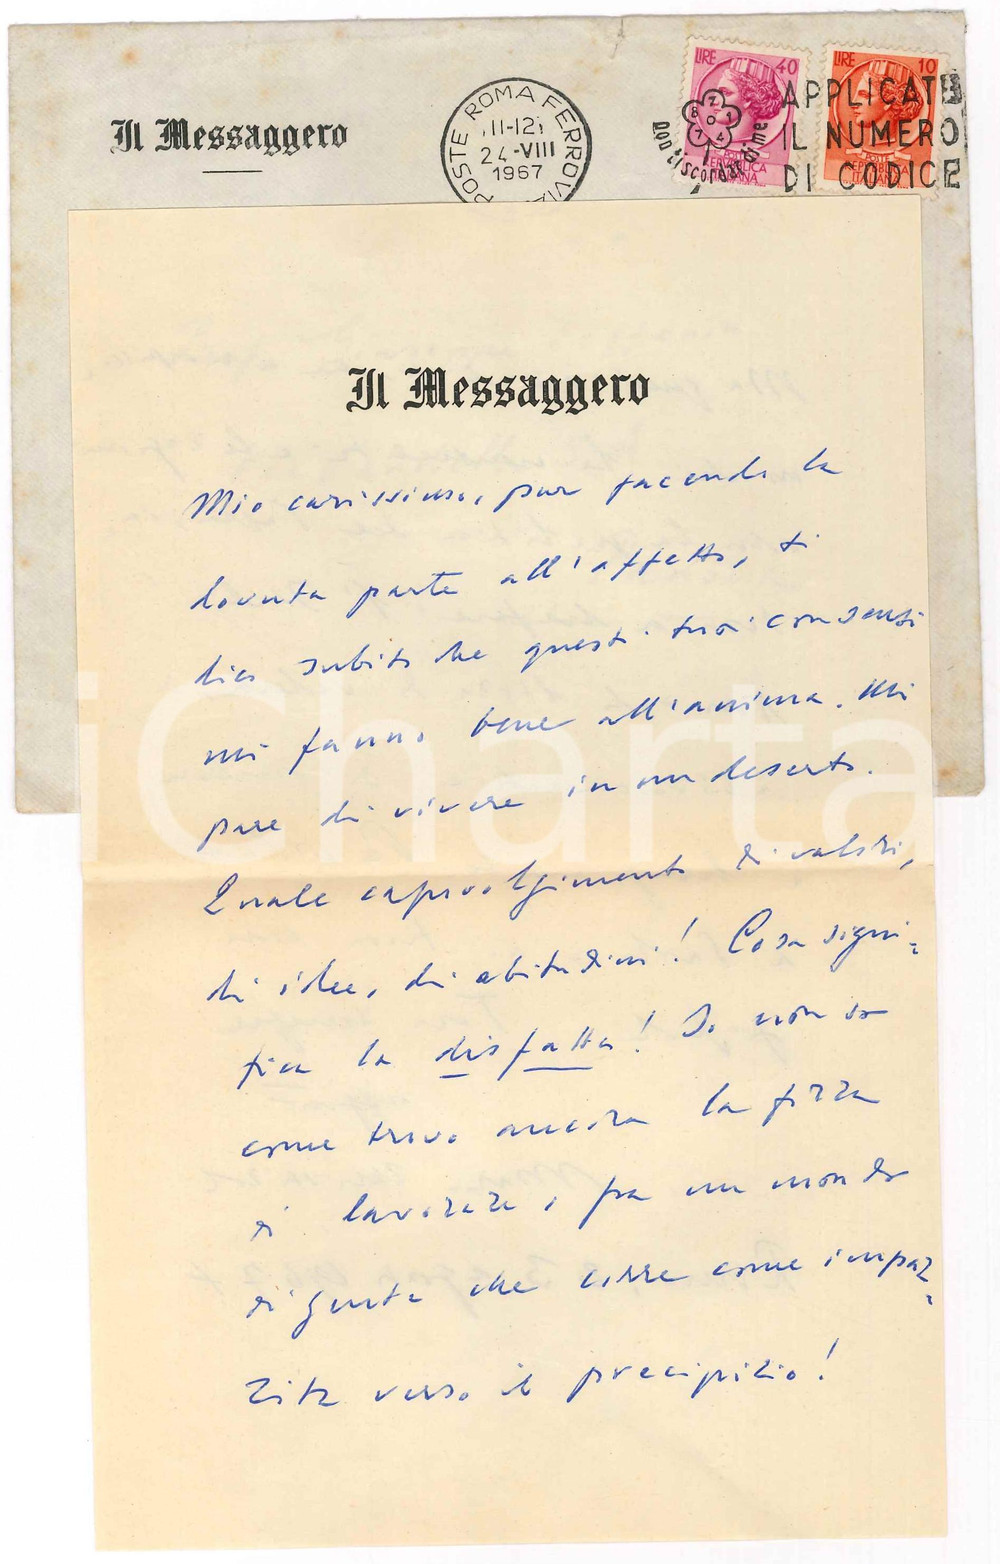 Il Messaggero
POSTE ROMA FERROVIA
11-12
24-VIII
1967
LIRE 40
LIRE 10
non ti scordar di me
APPLICATE
IL NUMERO
DI CODICE
Il Messaggero
Mio carissimo, pur facendo la
dovuta parte all'affetto, ti
dico subito che questi tuoi consensi
mi fanno bene all'anima. Mi
pare di vivere in un deserto.
Quale capovolgimento di valori,
di idee, di abitudini! Cosa signi=
fica la disfatta! Io non so
come trovo ancora la forza
di lavorare, fra un mondo
di gente che corre come impaz=
zita verso il precipizio!
iCharta